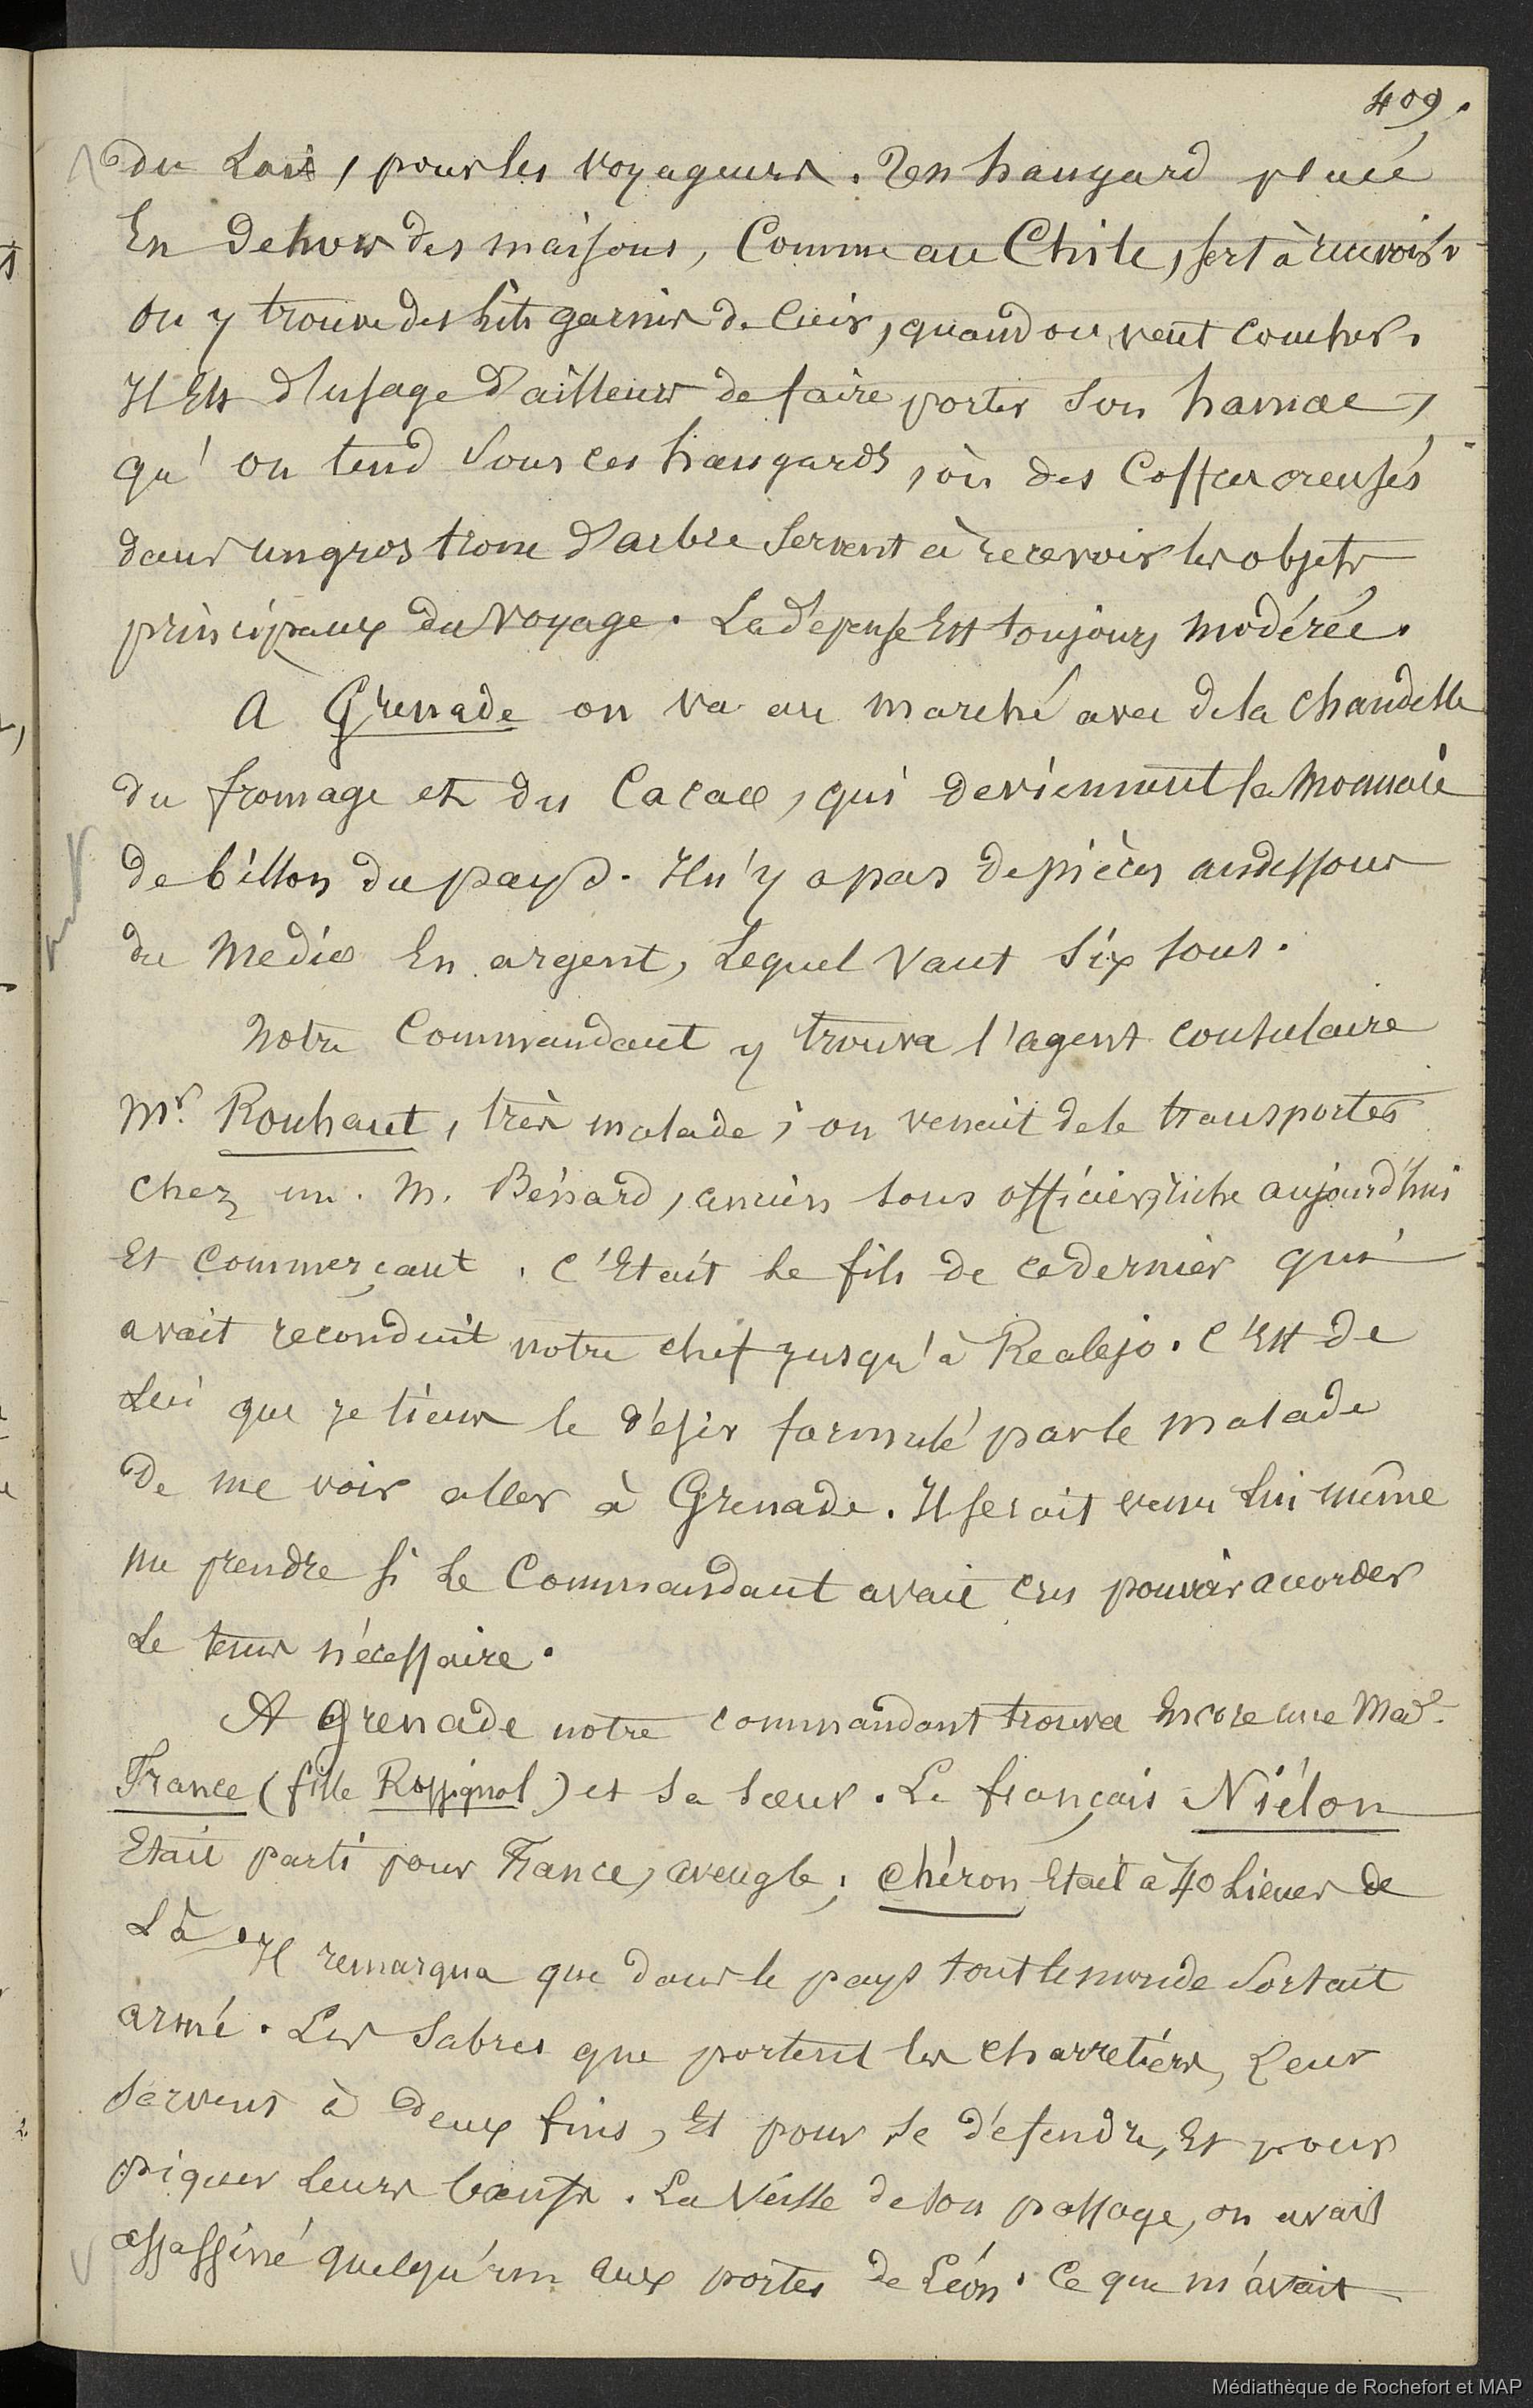 409.
du Lait, pour les voyageurs. Un hangard placé
En dehors des maisons, Comme au Chile, sert à recevoir.
On y trouve des Lits garnis de Cuir, quand on veut coucher.
Il Est d'usage d'ailleurs de faire porter son hamac,
qu'on tend sous ces hangards, où des Coffres creusés
dans un gros tronc d'arbre servent à recevoir les objets
principaux du Voyage. La dépense Est toujours modérée.
A Grenade on va au marché avec de la chandelle
du fromage et du Cacao, qui deviennent la Monnaie
de billon du pays. Il n'y a pas de pièces audessous
du Medio En argent, Lequel Vaut Six Sous.
Notre Commandant y trouva l'agent consulaire
Mr. Rouhaut, très malade; on venait de le transporter
chez un M. Bénard, ancien sous officier, riche aujourd'hui
Et commerçant. C'Etait le fils de ce dernier qui
avait reconduit notre chef jusqu'à Realejo. C'Est de
Lui que je tiens le désir formulé par le malade
De me voir aller à Grenade. Il serait venu Lui même
me prendre si Le Commandant avait cru pouvoir accorder
Le tems nécessaire.
A Grenade notre commandant trouva Encore une Made.
France (fille Rossignol) et sa sœur. Le français Niélon
Etait parti pour France, aveugle; Chéron Etait à 40 Lieues de
Là. Il remarqua que dans le pays tout le monde Sortait
armé. Les Sabres que portent les charretiers, Leur
servent à deux fins, Et pour se défendre, Et pour
piquer leurs bœufs. La Veille de son passage, on avait
assassiné quelqu'un aux portes de Léon. Ce que m'avait
Médiathèque de Rochefort et MAP